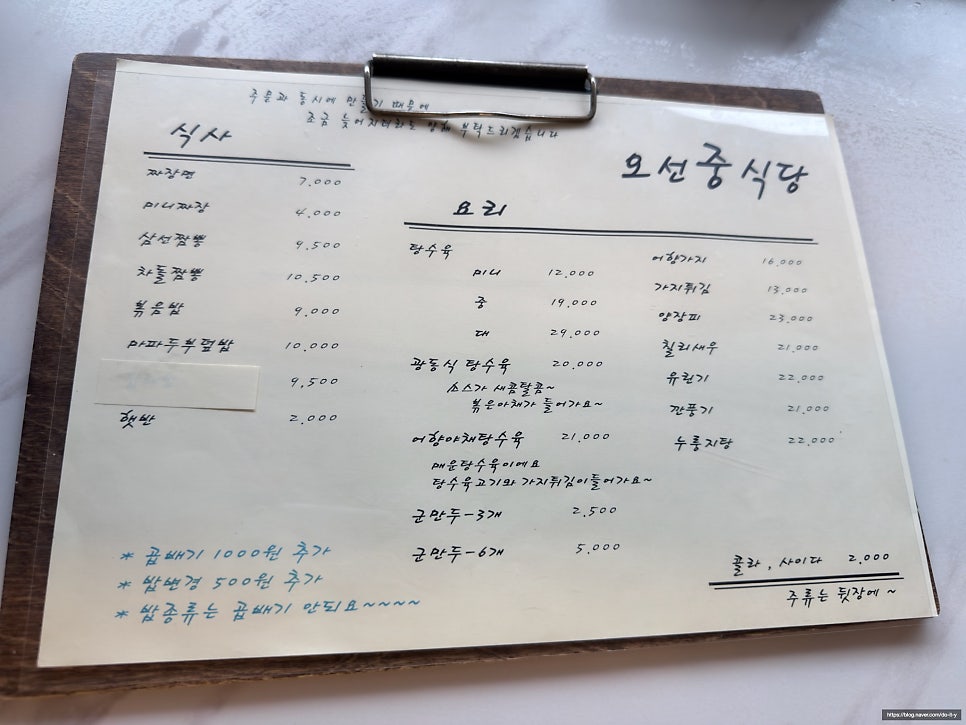 주문과 동시에 만들기 때문에
조금 늦어지더라도 양해 부탁드리겠습니다
오선중식당
식사
짜장면 7,000
미니짜장 4,000
삼선짬뽕 9,500
차돌짬뽕 10,500
볶음밥 9,000
마파두부덮밥 10,000
9,500
햇반 2,000
* 곱배기 1000원 추가
* 밥변경 500원 추가
* 밥종류는 곱배기 안되요~~~~
요리
탕수육
미니 12,000
중 19,000
대 29,000
광동식 탕수육 20,000
소스가 새콤달콤~
볶은야채가 들어가요~
어향야채탕수육 21,000
매운탕수육이에요
탕수육고기와 가지튀김이들어가요~
군만두-3개 2,500
군만두-6개 5,000
어향가지 16,000
가지튀김 13,000
양장피 23,000
칠리새우 21,000
유린기 22,000
깐풍기 21,000
누룽지탕 22,000
콜라, 사이다 2,000
주류는 뒷장에~
https://blog.naver.com/do-it-y